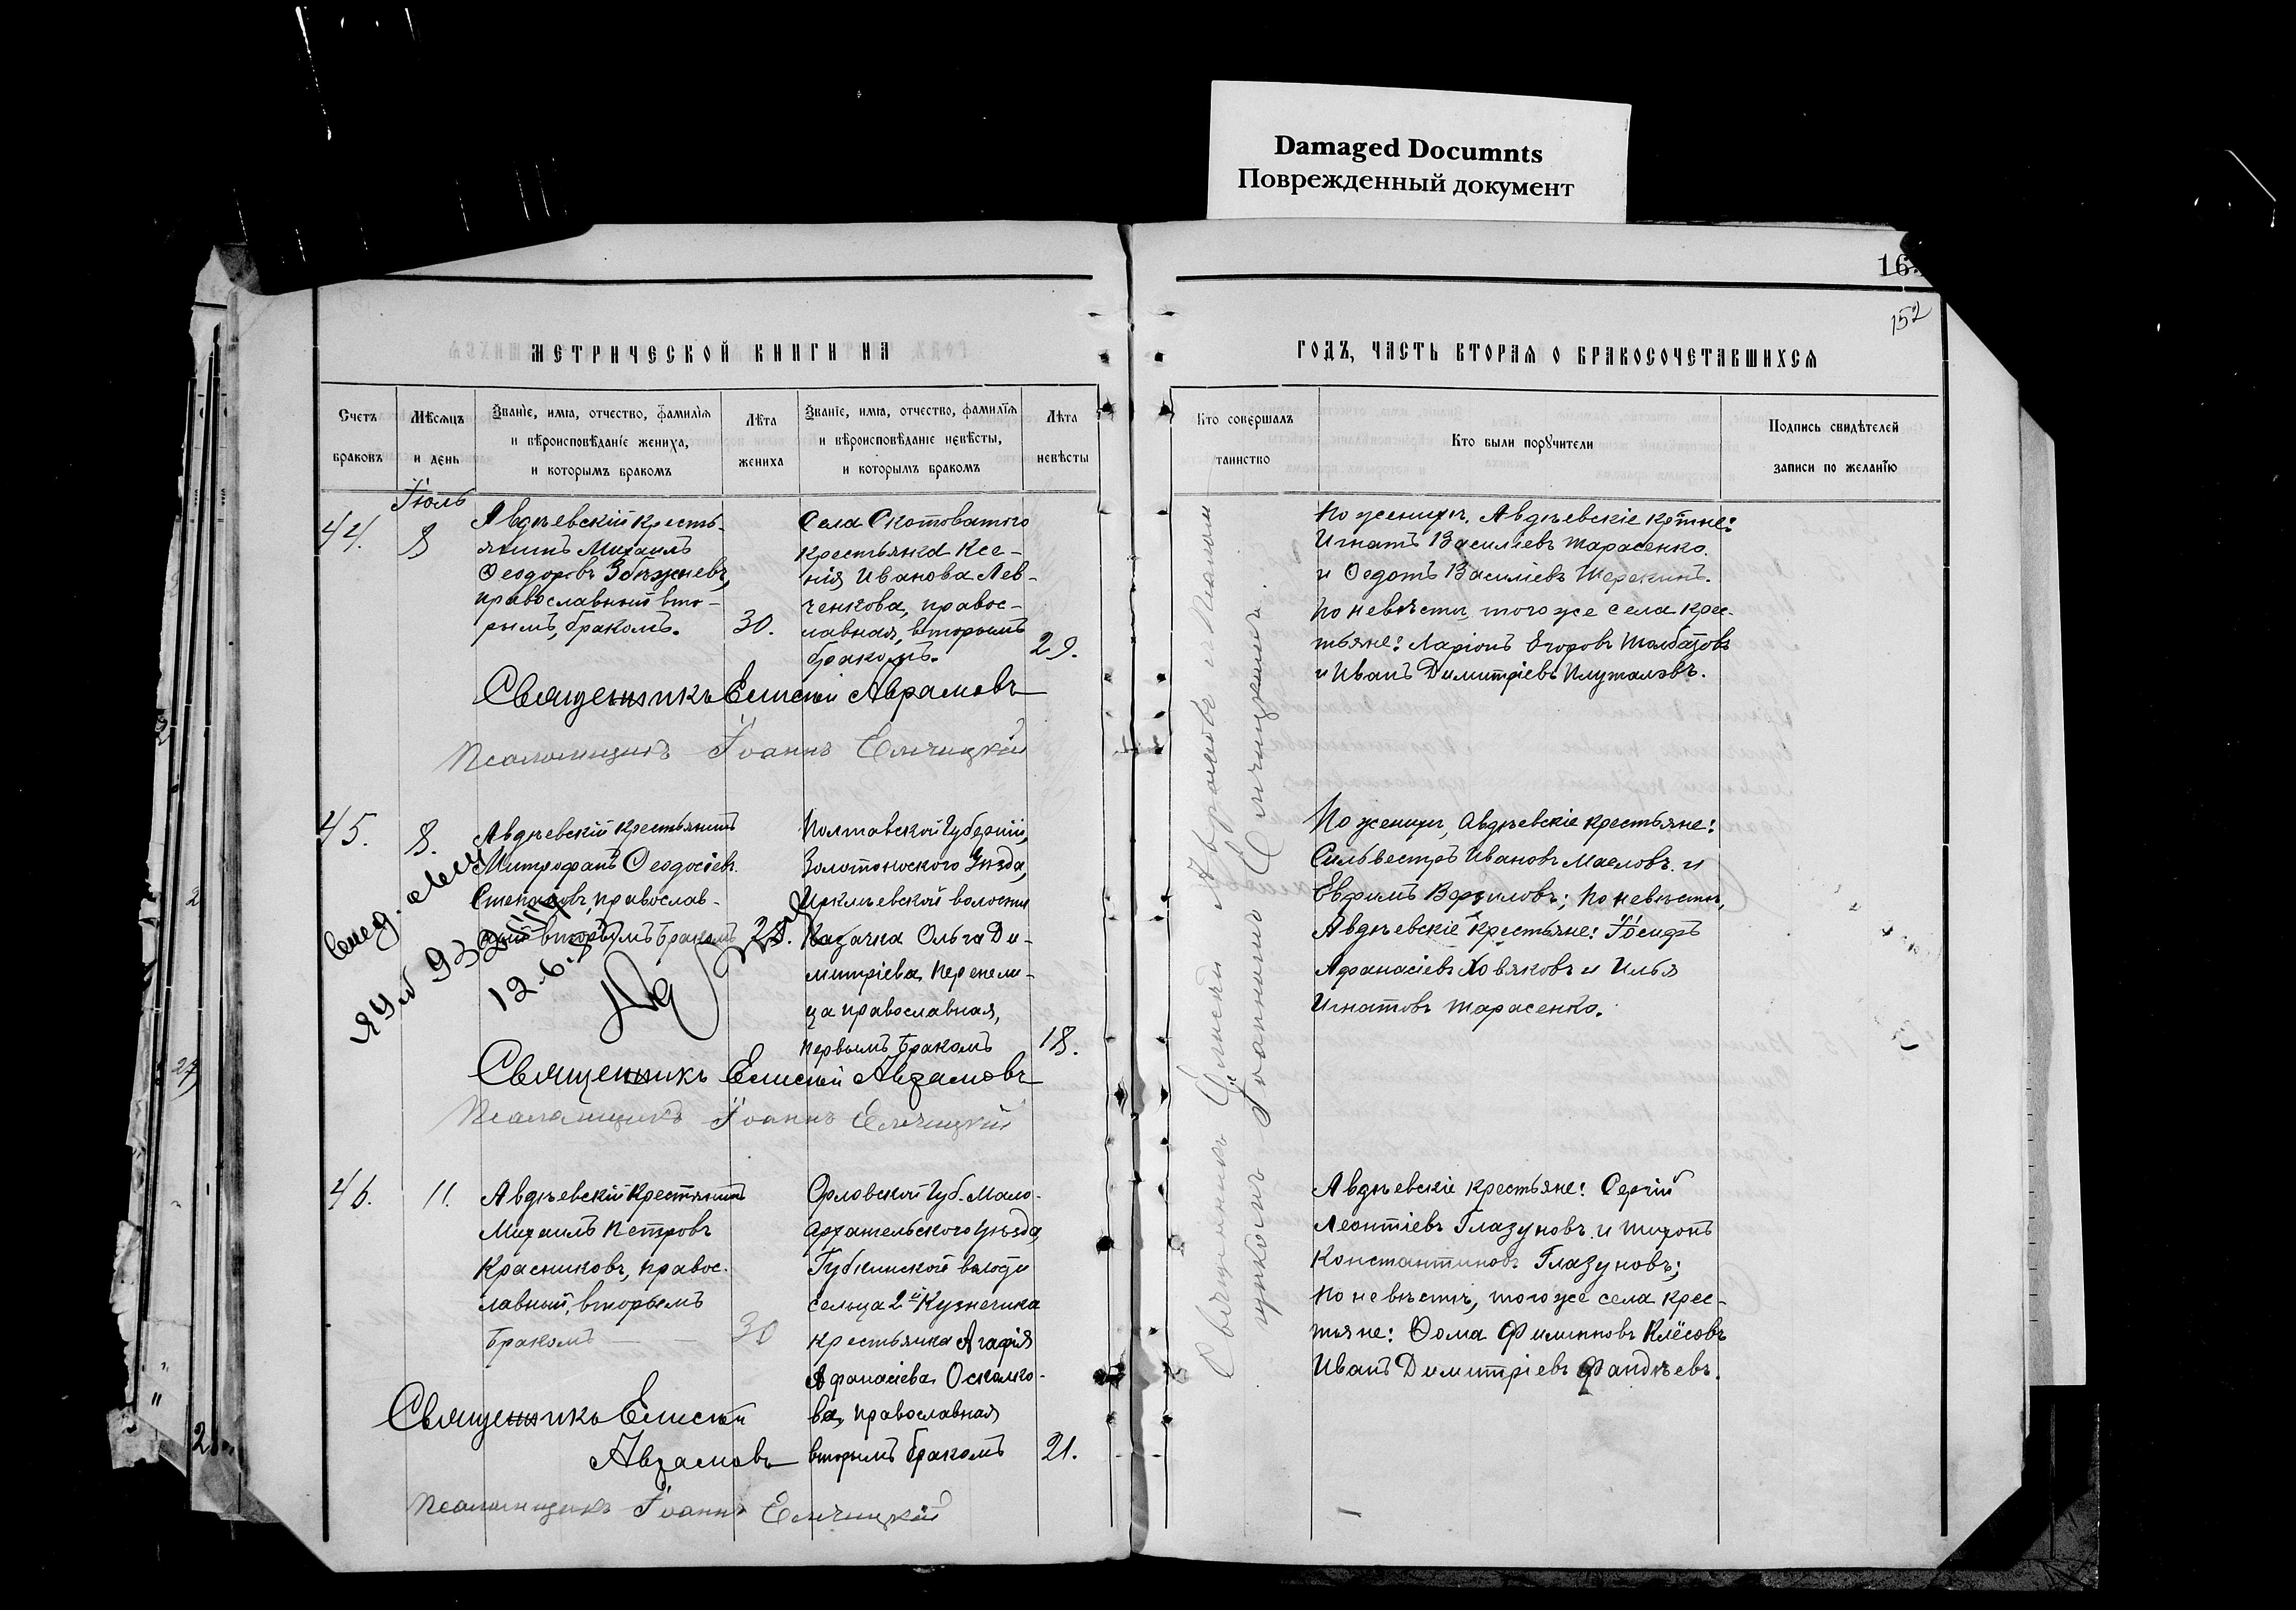 Damaged Documnts
Поврежденный документ
152
МЕТРИЧЕСКОЙ КНИГИ НА
ГОДЪ, ЧАСТЬ ВТОРАЯ О БРАКОСОЧЕТАВШИХСЯ
Счетъ
браковъ
Мѣсяцъ
и день
Званіе, имя, отчество, фамилія
и вѣроисповѣданіе жениха,
и которымъ бракомъ
Лѣта
жениха
Званіе, имя, отчество, фамилія
и вѣроисповѣданіе невѣсты,
и которымъ бракомъ
Лѣта
невѣсты
Кто совершалъ
таинство
Кто были поручители
Подпись свидѣтелей
записи по желанію
Іюль
44.
8
Авдѣевскій кресть-
янинъ Михаилъ
Ѳеодоровъ Збѣжневъ,
православный вто-
рымъ, бракомъ.
30.
Села Скотоватого
крестьянка Ксе-
нія Иванова Лев-
ченкова, правос-
лавная, вторымъ
бракомъ.
29.
По женихѣ, Авдѣевскіе кр̃тяне:
Игнатъ Василіевъ Тарасенко
и Ѳедотъ Василіевъ
по невѣстѣ, того же села крес-
тьяне: Ларіонъ Егоровъ
и Иванъ Димитріевъ
Священникъ Елисей Аврамовъ
Псаломщикъ Іоаннъ Ельчицкій
45.
8.
Авдѣевскій крестьянинъ
Митрофанъ Ѳеодосіевъ
Степановъ, православ-
ный вторымъ бракомъ
Полтавской Губерніи,
Золотоноского Уѣзда,
Ирклѣевской волости
Казачка Ольга Ди-
митріева Перепели-
ца православная,
первымъ бракомъ
18.
По женихѣ, Авдѣевскіе крестьяне:
Сильвестръ Ивановъ Масловъ и
Евфимъ; по невѣстѣ,
Авдѣевскіе крестьяне: Іосифъ
Афанасіевъ Ховяковъ и Илья
Игнатовъ Тарасенко.
12.6.
Священникъ Елисей Аврамовъ
Псаломщикъ Іоаннъ Ельчицкій
46.
11.
Авдѣевскій Крестьянинъ
Михаилъ Петровъ
Красниковъ, правос-
лавный, вторымъ
бракомъ
30
Орловской Губ. Мало-
архангельского Уѣзда,
Губкинской волости
сельца 2й Кузнечика
крестьянка Агафія
Афанасіева Осколко-
ва, православная
вторымъ бракомъ
21.
Авдѣевскіе крестьяне: Сергій
Леонтіевъ Глазуновъ и Тихонъ
Константиновъ Глазуновъ;
по невѣстѣ, того же села крес-
тяне: Ѳома Филипповъ Клёсовъ
Иванъ Димитріевъ Фандѣевъ.
Священникъ Елисей
Аврамовъ
Псаломщикъ Іоаннъ Ельчицкій
Священникъ Елисей Аврамовъ с Псалом
щикомъ Іоанномъ Ельчицкимъ